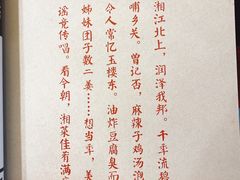 湘江北上，润泽我邦。千年流
哺乡关。曾记否，麻辣子鸡汤泡
令人常忆玉楼东。油炸豆腐臭而
姊妹团子数二姜……想当年，美
谣竞传唱。看今朝，湘菜佳肴满